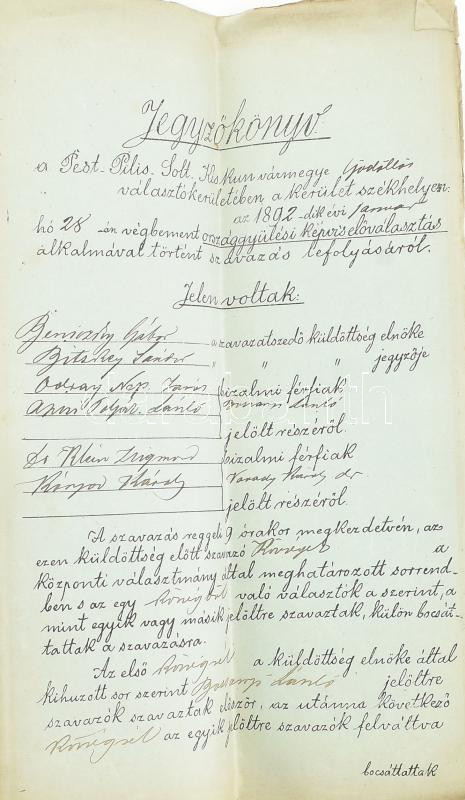 Jegyzőkönyv.
a Pest-Pilis-Solt-Kiskun vármegye Gödöllői
választókerületében a kerület székhelyén
az 1892-dik évi január
hó 28-án végbement országgyűlési képviselőválasztás
alkalmával történt szavazás lefolyásáról.
Jelen voltak:
Beniczky Gábor a szavazatszedő küldöttség elnöke
Bitskey " " jegyzője
bizalmi férfiak
László László
jelölt részéről.
Dr Klein Zsigmond bizalmi férfiak
Károly Várady Károly dr
jelölt részéről.
A szavazás reggeli 9 órakor megkezdetvén, az
ezen küldöttség előtt szavazó Községek a
központi választmány által meghatározott sorrend-
ben s az egy községből való választók a szerint, a
mint egyik vagy másik jelöltre szavaztak, külön bocsát-
tattak a szavazásra.
Az első községnél a küldöttség elnöke által
kihuzott sor szerint László jelöltre
szavazók szavaztak először, az utánna következő
Községnél az egyik jelöltre szavazók felváltva
bocsáttattak